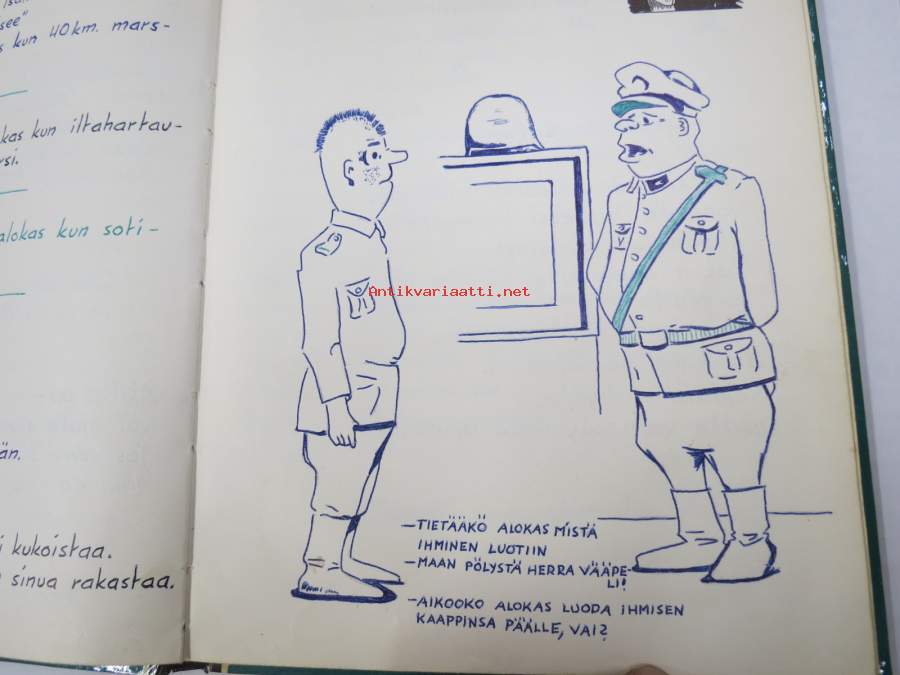 see"
kun 40 km. mars-
kas kun iltahartau-
rsi.
alokas kun soti-
än.
i kukoistaa.
sinua rakastaa.
Antikvariaatti.net
—TIETÄÄKÖ ALOKAS MISTÄ
IHMINEN LUOTIIN
—MAAN PÖLYSTÄ HERRA VÄÄPE-
LI!
—AIKOOKO ALOKAS LUODA IHMISEN
KAAPPINSA PÄÄLLE, VAI?